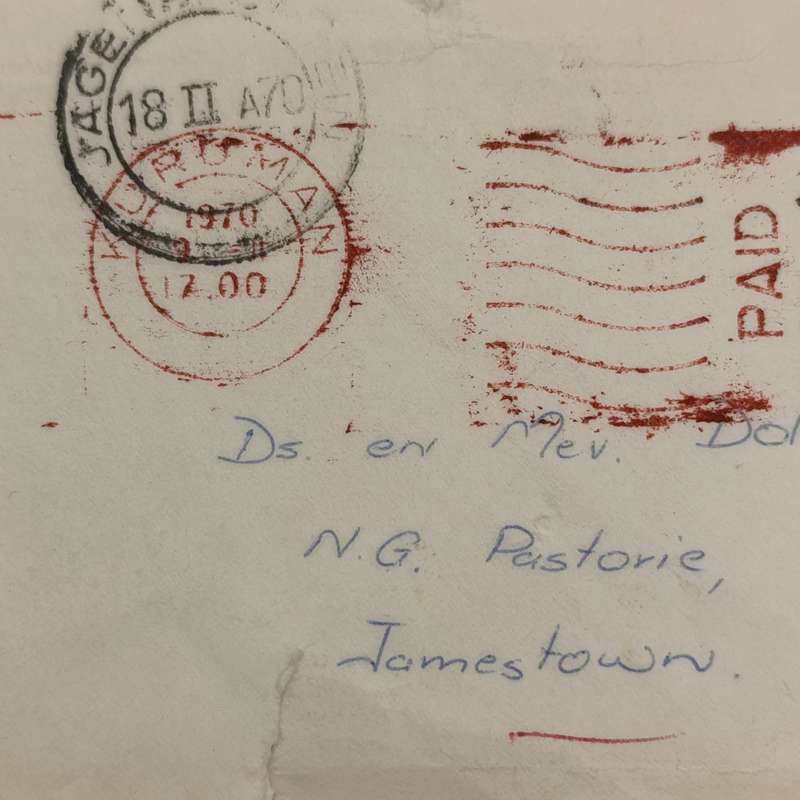 18 II A70
KURUMAN
1970
12.00
PAID
Ds. en Mev.
N.G. Pastorie,
Jamestown.